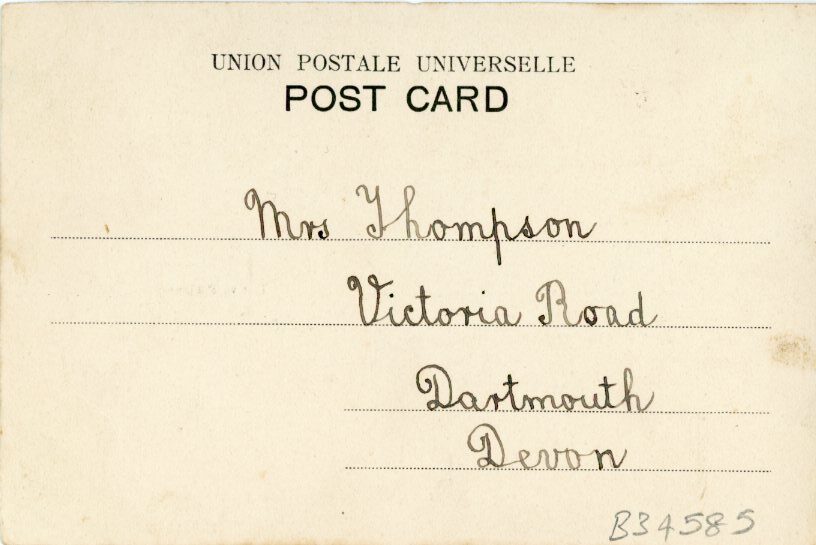 UNION POSTALE UNIVERSELLE
POST CARD
Mrs Thompson
Victoria Road
Dartmouth
Devon
B34585